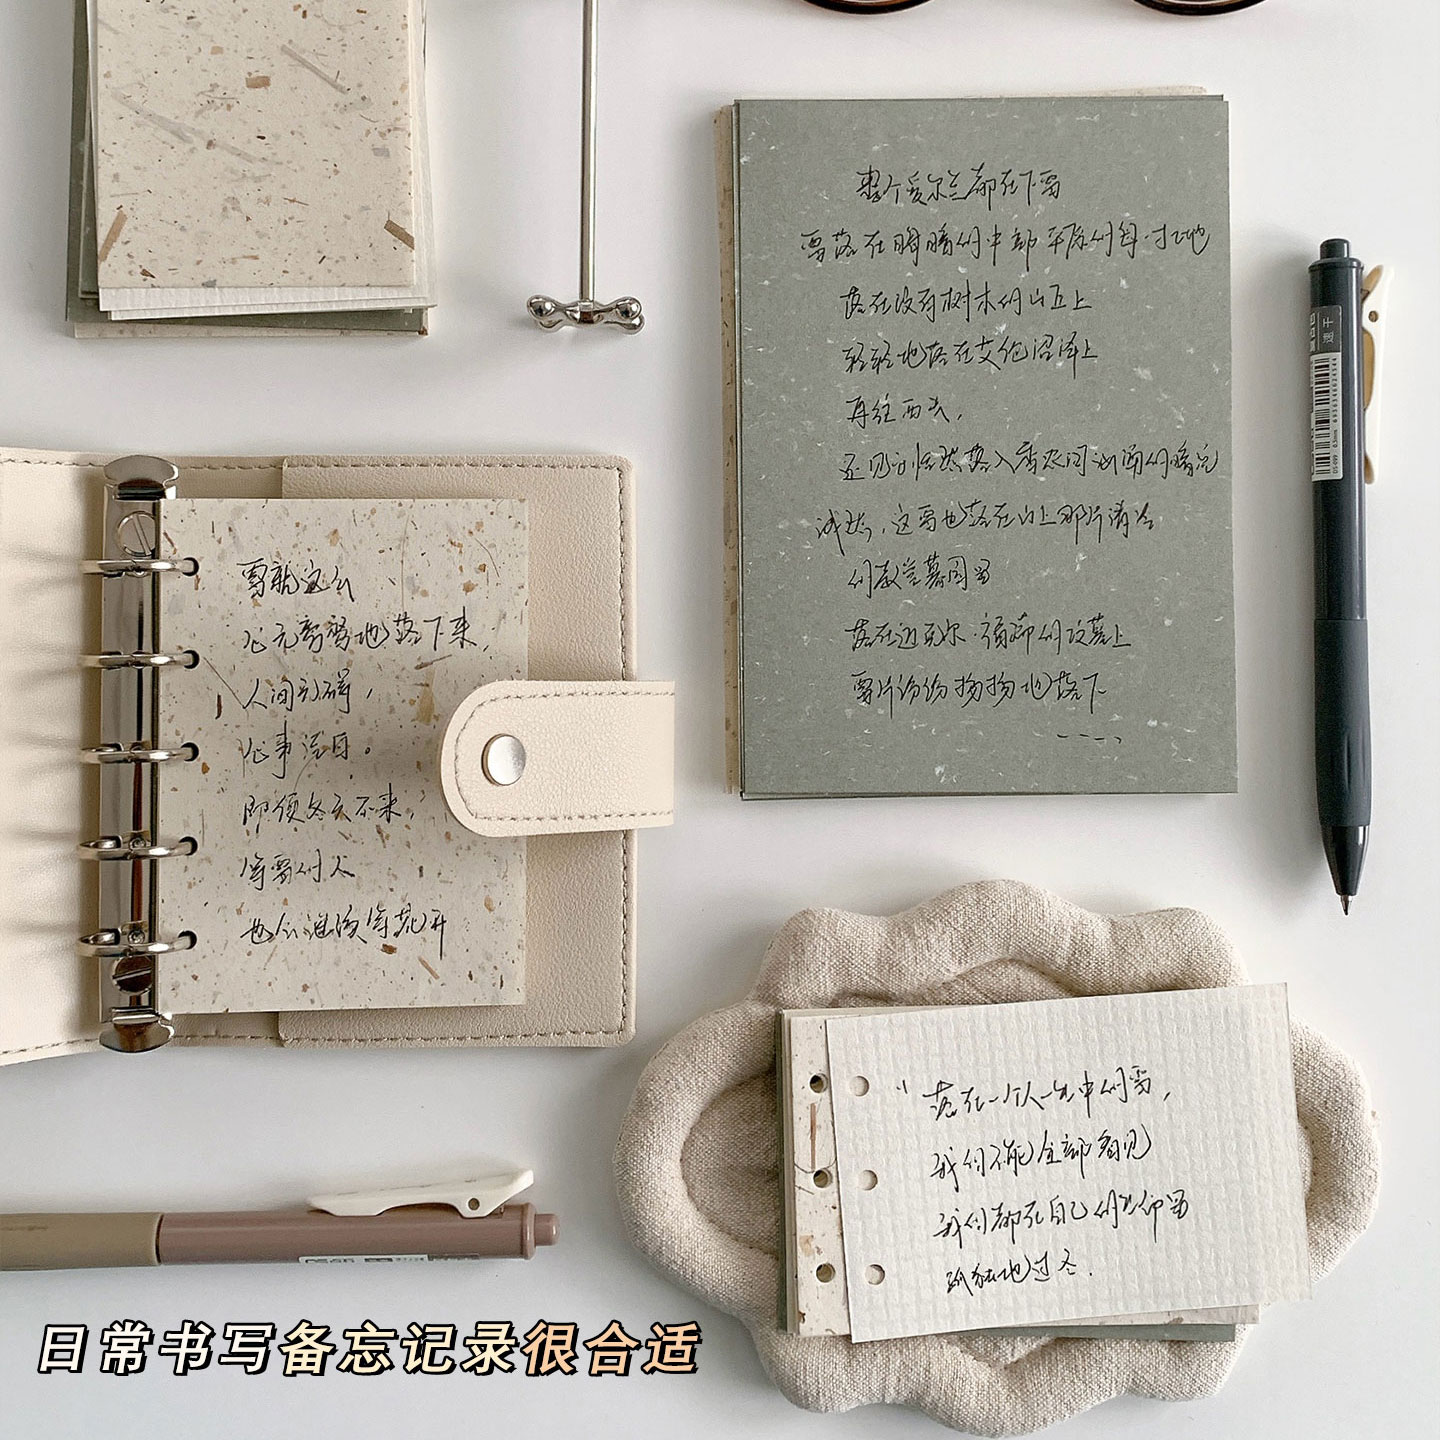 整个爱尔兰都在下雪
雪落在阴暗的中部平原的每一寸土地
落在没有树木的山丘上
轻轻地落在艾伦沼泽上
再往西去，
还见到悄然落入香农河汹涌的暗流
诚然，这雪也落在山上那片清冷
的教堂墓园里
落在迈克尔·福瑞的坟墓上
雪片纷纷扬扬地落下
雪就这么
心无旁骛地落下来，
人间
心事
即便冬天不来，
等雪的人
也会继续等花开
“落在一个人一生中的雪，
我们不能全部看见
我们都在自己的生命里
孤独地过冬.
速干
日常书写备忘记录很合适